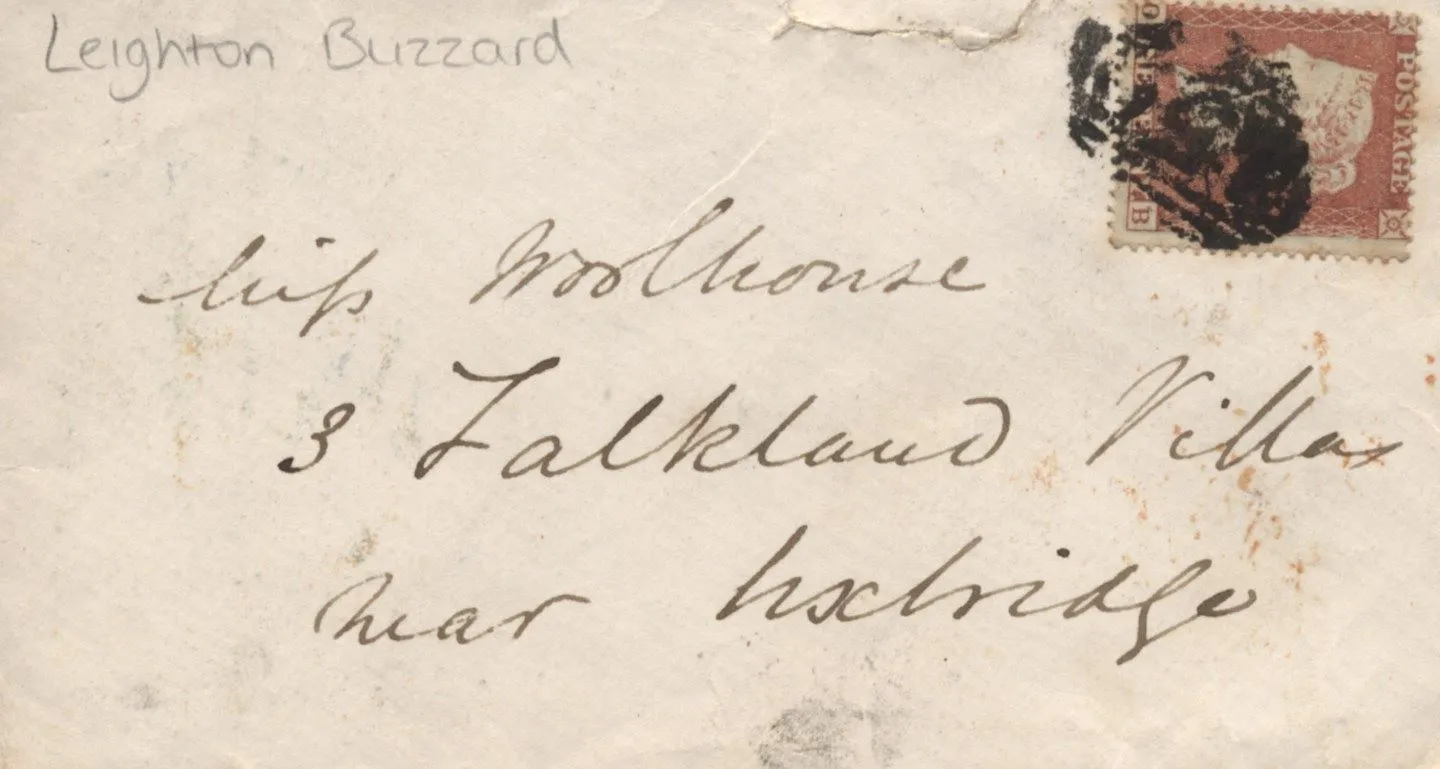 Leighton Buzzard
POSTAGE
B
Miss Woolhouse
3 Falkland Villas
near Uxbridge